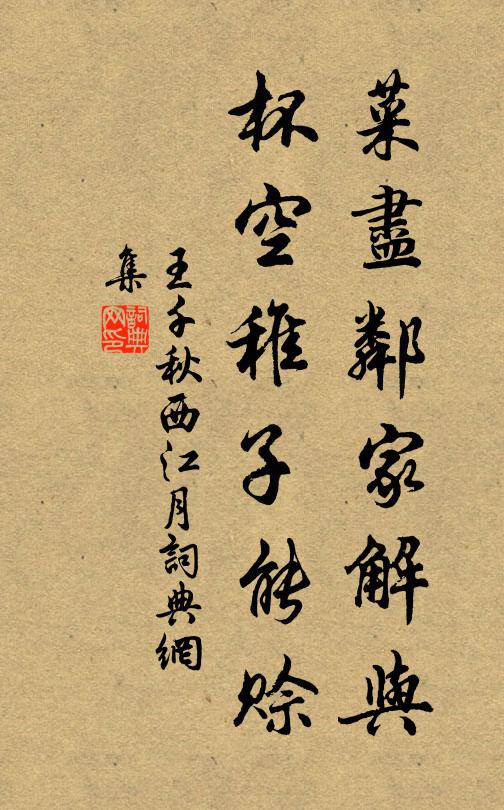 菜盡鄰家解與
杯空稚子能賒
王千秋西江月詞典網
集
詞典網印